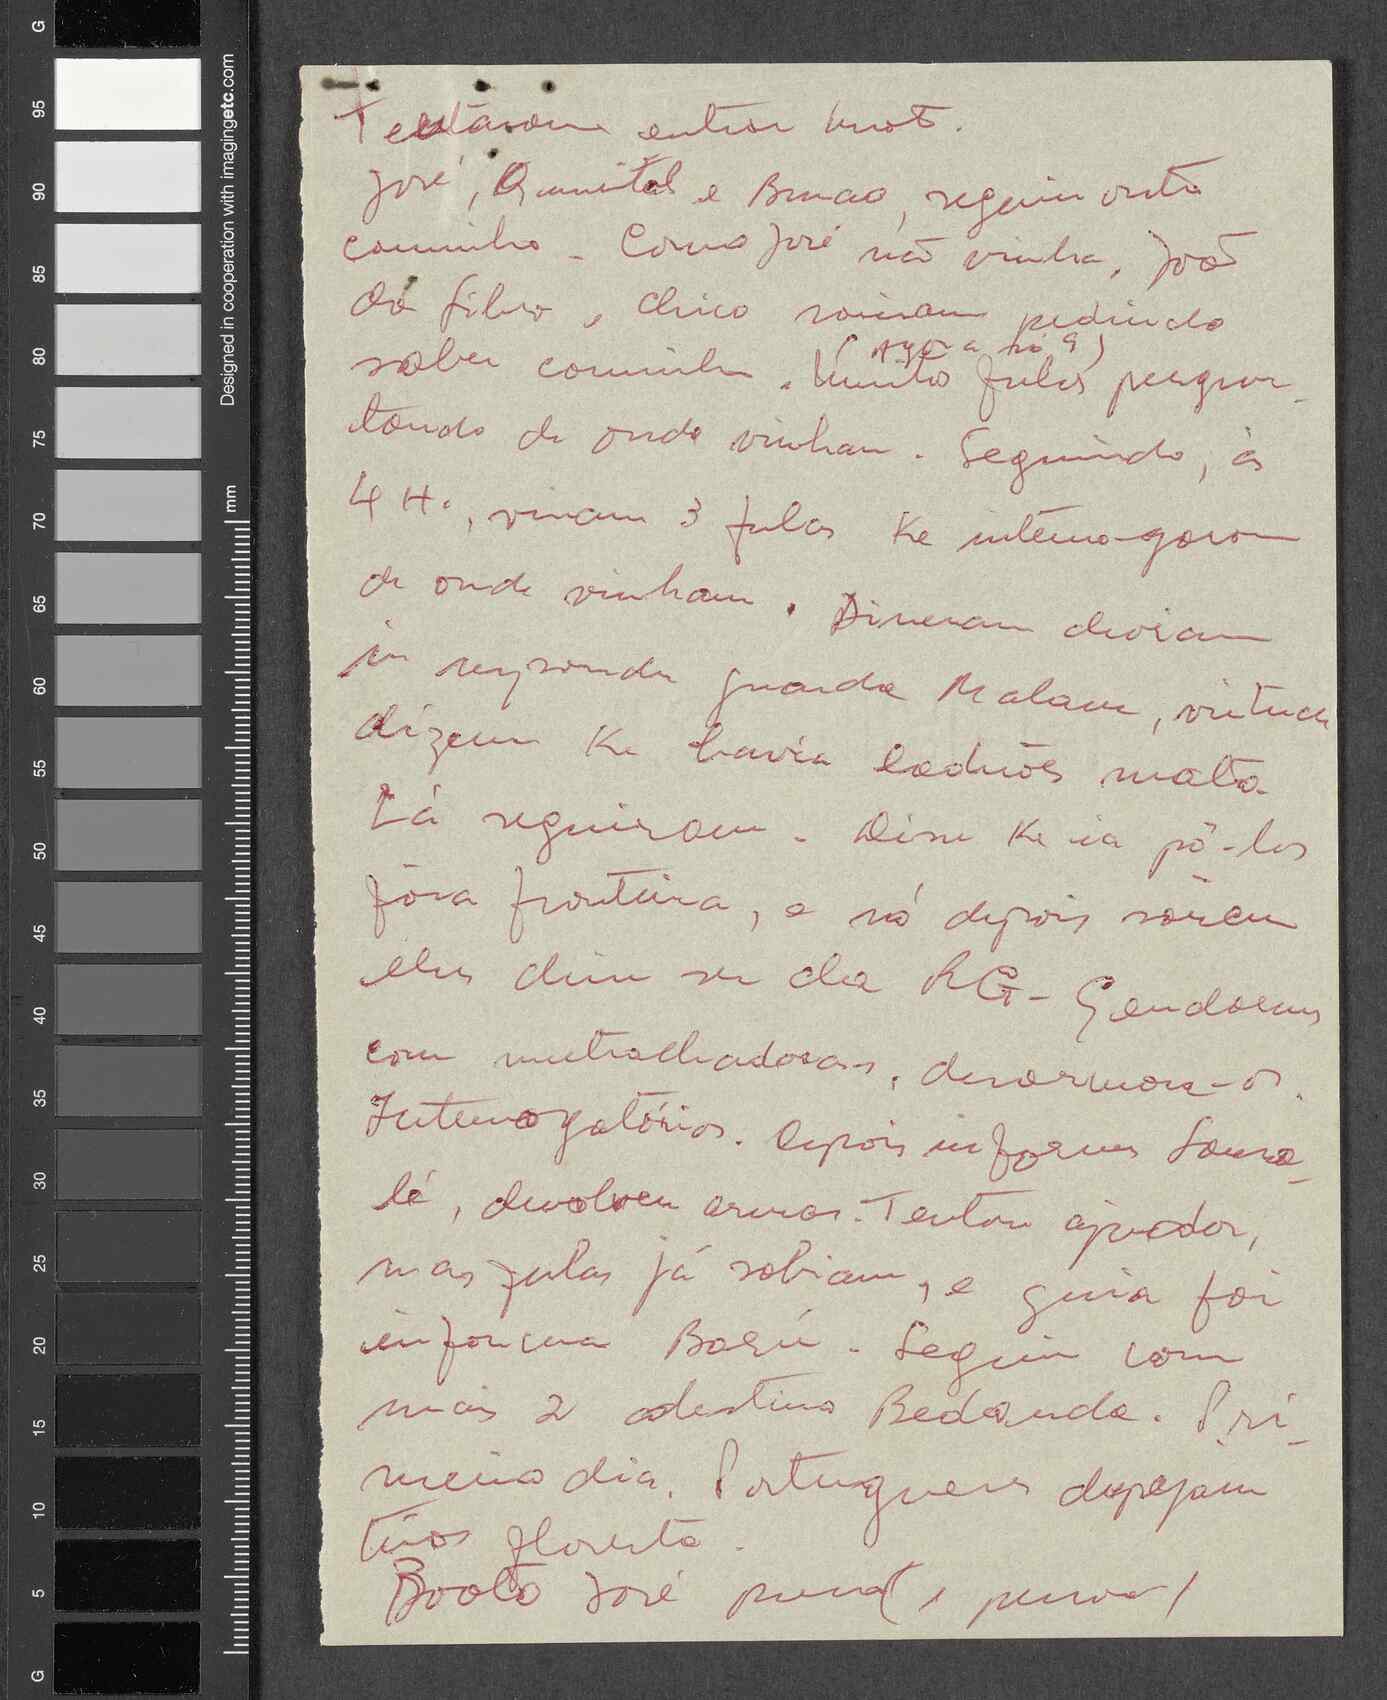 Tentaram entrar mato.
José, Quintal e Bruao, seguiu outro
caminho - Como José não vinha, João
da Silva e Chico sairam pedindo
saber caminho. (Agora há 9)
Muito fulas pergun-
tando de onde vinham. Seguindo, às
4 H., viram 3 fulas Ke interrogaram
de onde vinham. Disseram deviam
ir responder guarda Malam, virtude
dizem Ke havia ladrões mato.
Lá seguiram. Disse Ke ia pô-los
fora fronteira, e só depois
eles disse se da RG - Gendarmes
com metralhadoras, desarmou-os.
Interrogatórios. Depois informes Sansa-
lé, devolveu armas. Tentou ajudar,
mas fulas já sabiam, e guia foi
informar Boeú. Seguiu com
mais 2 destino Bedanda. Pri-
meiro dia. Portugueses despejam
tiros floresta.
Boato José preso (1 pessoa)
G
95
90
85
80
75
70
65
60
55
50
45
40
35
30
25
20
15
10
5
G
Designed in cooperation with imagingetc.com
mm